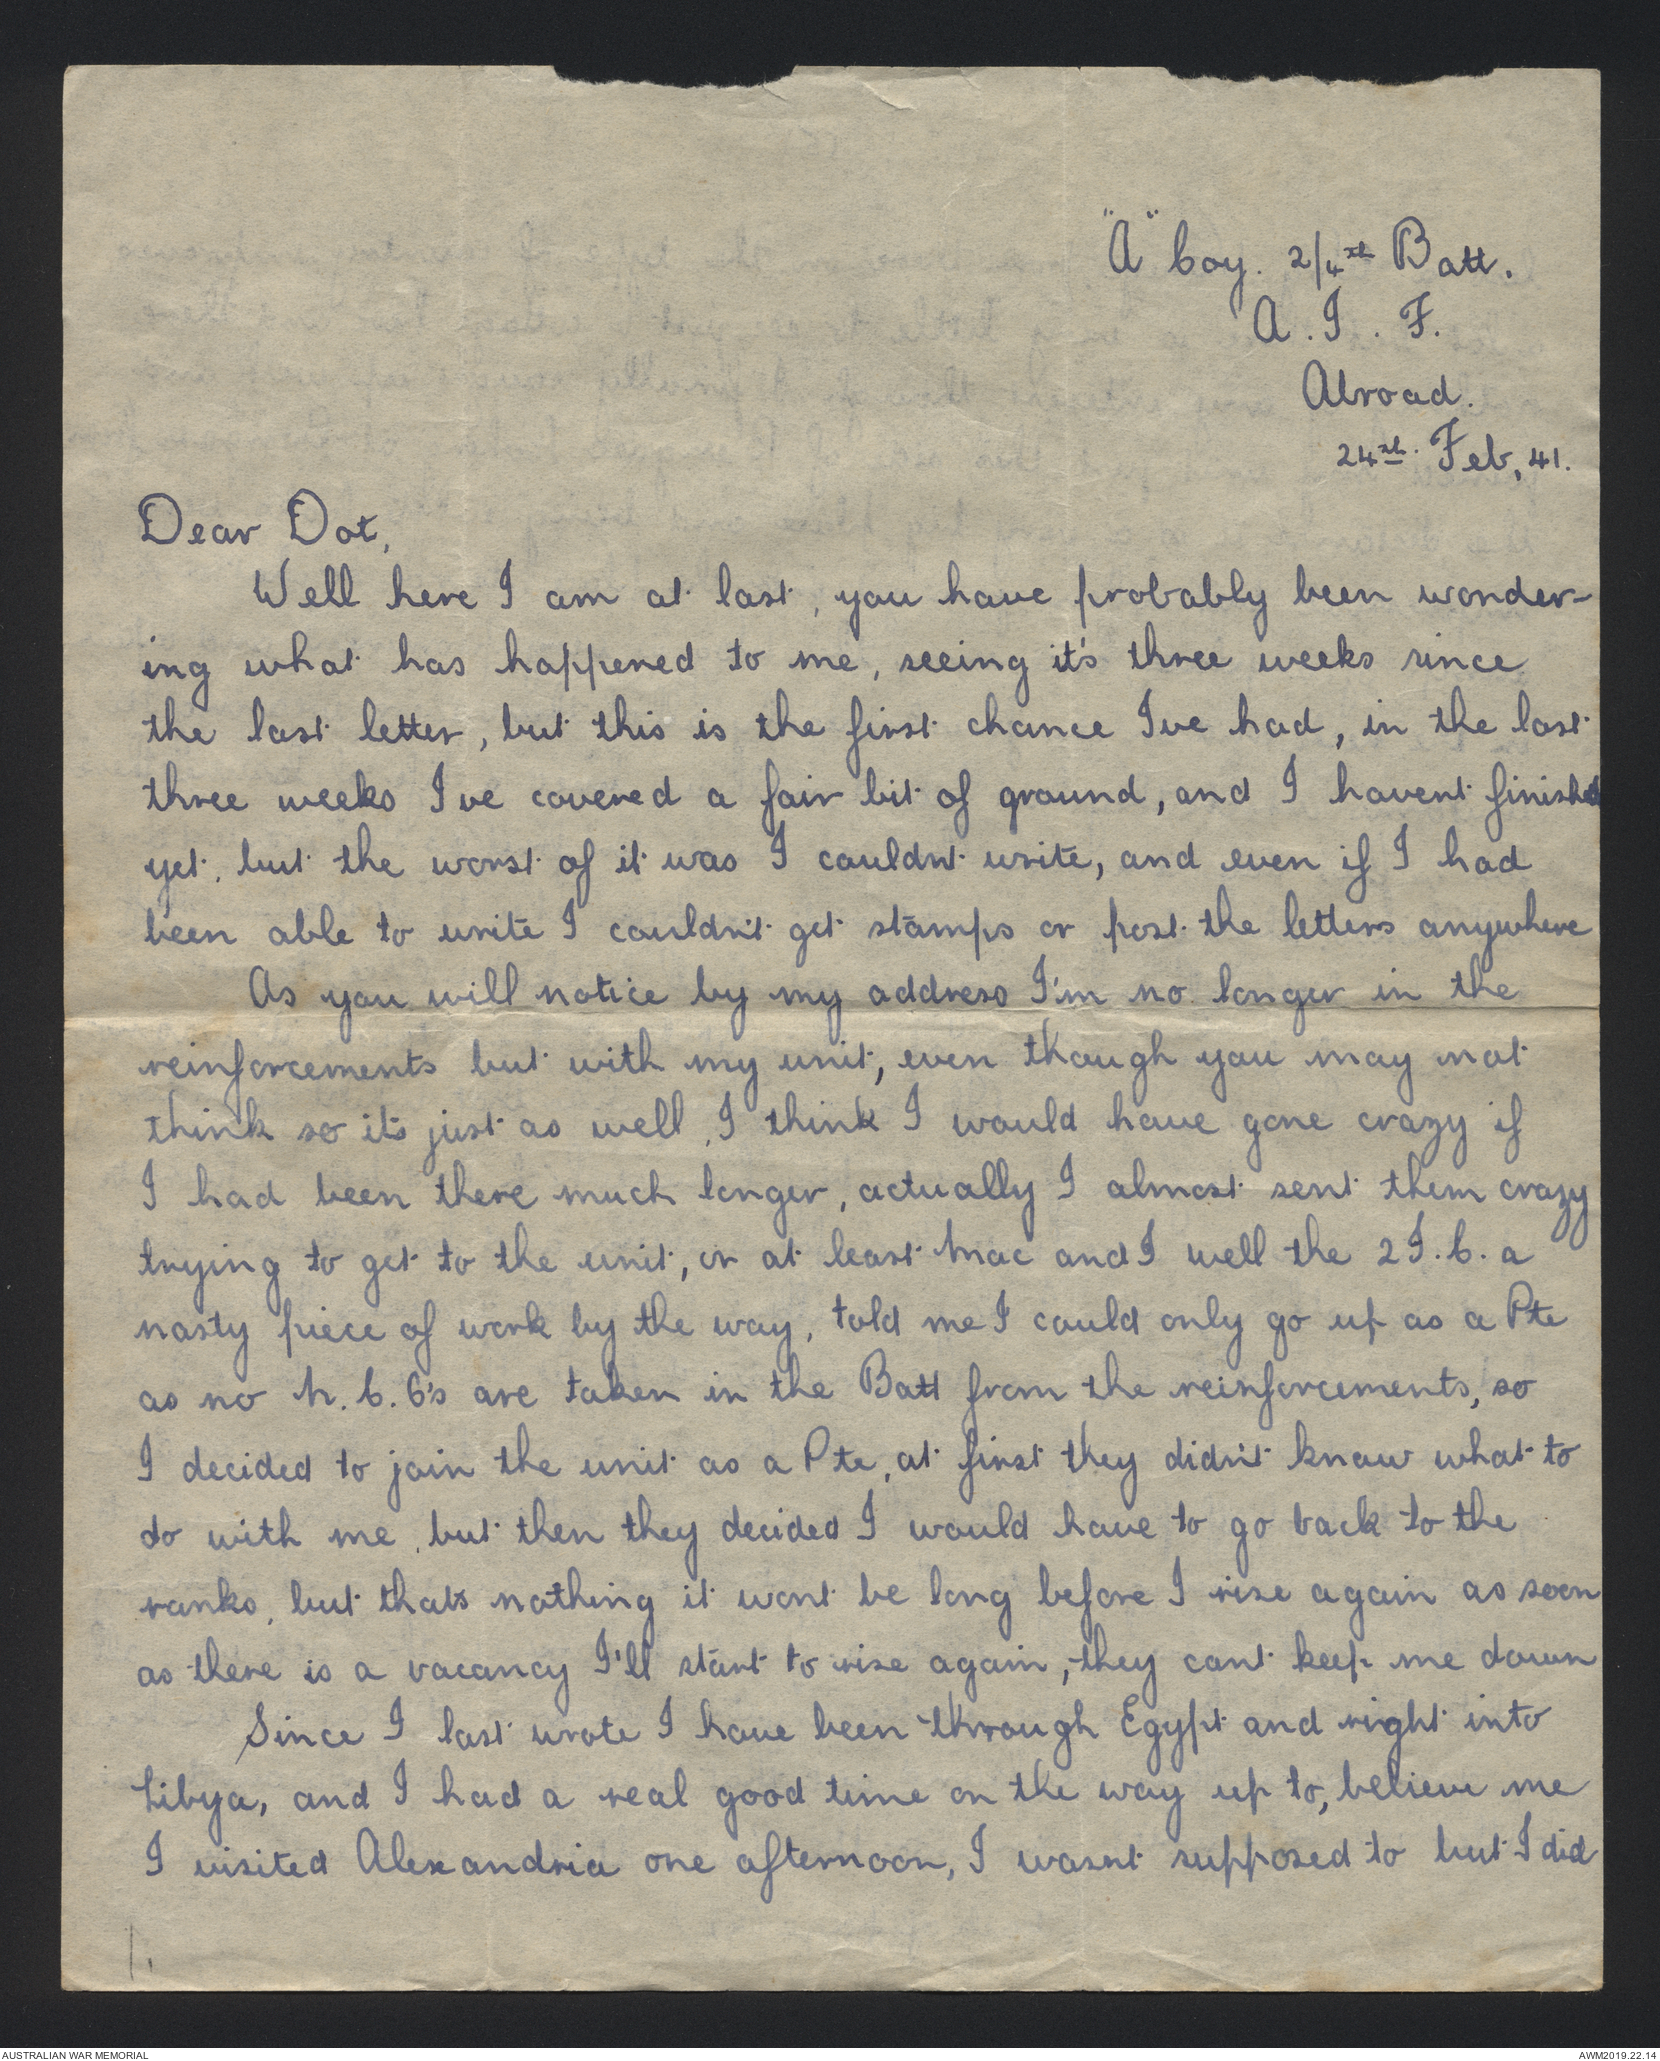 "A" Coy. 2/4th Batt.
A. I. F.
Abroad.
24th. Feb, 41.
Dear Dot,
Well here I am at last, you have probably been wonder-
ing what has happened to me, seeing it's three weeks since
the last letter, but this is the first chance Ive had, in the last
three weeks Ive covered a fair bit of ground, and I havent finished
yet, but the worst of it was I couldnt write, and even if I had
been able to write I couldn't get stamps or post the letters anywhere
As you will notice by my address I'm no longer in the
reinforcements but with my unit, even though you may not
think so its just as well, I think I would have gone crazy if
I had been there much longer, actually I almost sent them crazy
trying to get to the unit, or at least Mac and I well the 2 I.C. a
nasty piece of work by the way, told me I could only go up as a Pte
as no N.C.O's are taken in the Batt from the reinforcements, so
I decided to join the unit as a Pte, at first they didn't know what to
do with me, but then they decided I would have to go back to the
ranks, but thats nothing it wont be long before I rise again as soon
as there is a vacancy I'll start to rise again, they cant keep me down
Since I last wrote I have been through Egypt and right into
Libya, and I had a real good time on the way up to, believe me
I visited Alexandria one afternoon, I wasnt supposed to but I did
1.
AUSTRALIAN WAR MEMORIAL
AWM2019.22.14